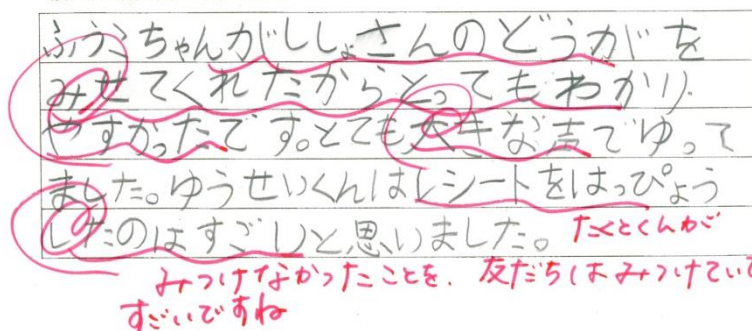 ふうこちゃんがししょさんのどうがを
みせてくれたからとってもわかり
やすかったです。とても大きな声でゆって
ました。ゆうせいくんはレシートをはっぴょう
したのはすごいと思いました。
たくとくんが
みつけなかったことを、友だちはみつけていて
すごいですね